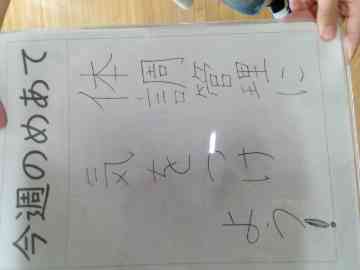 今週のめあて
体調管理に
気をつけ
よう!